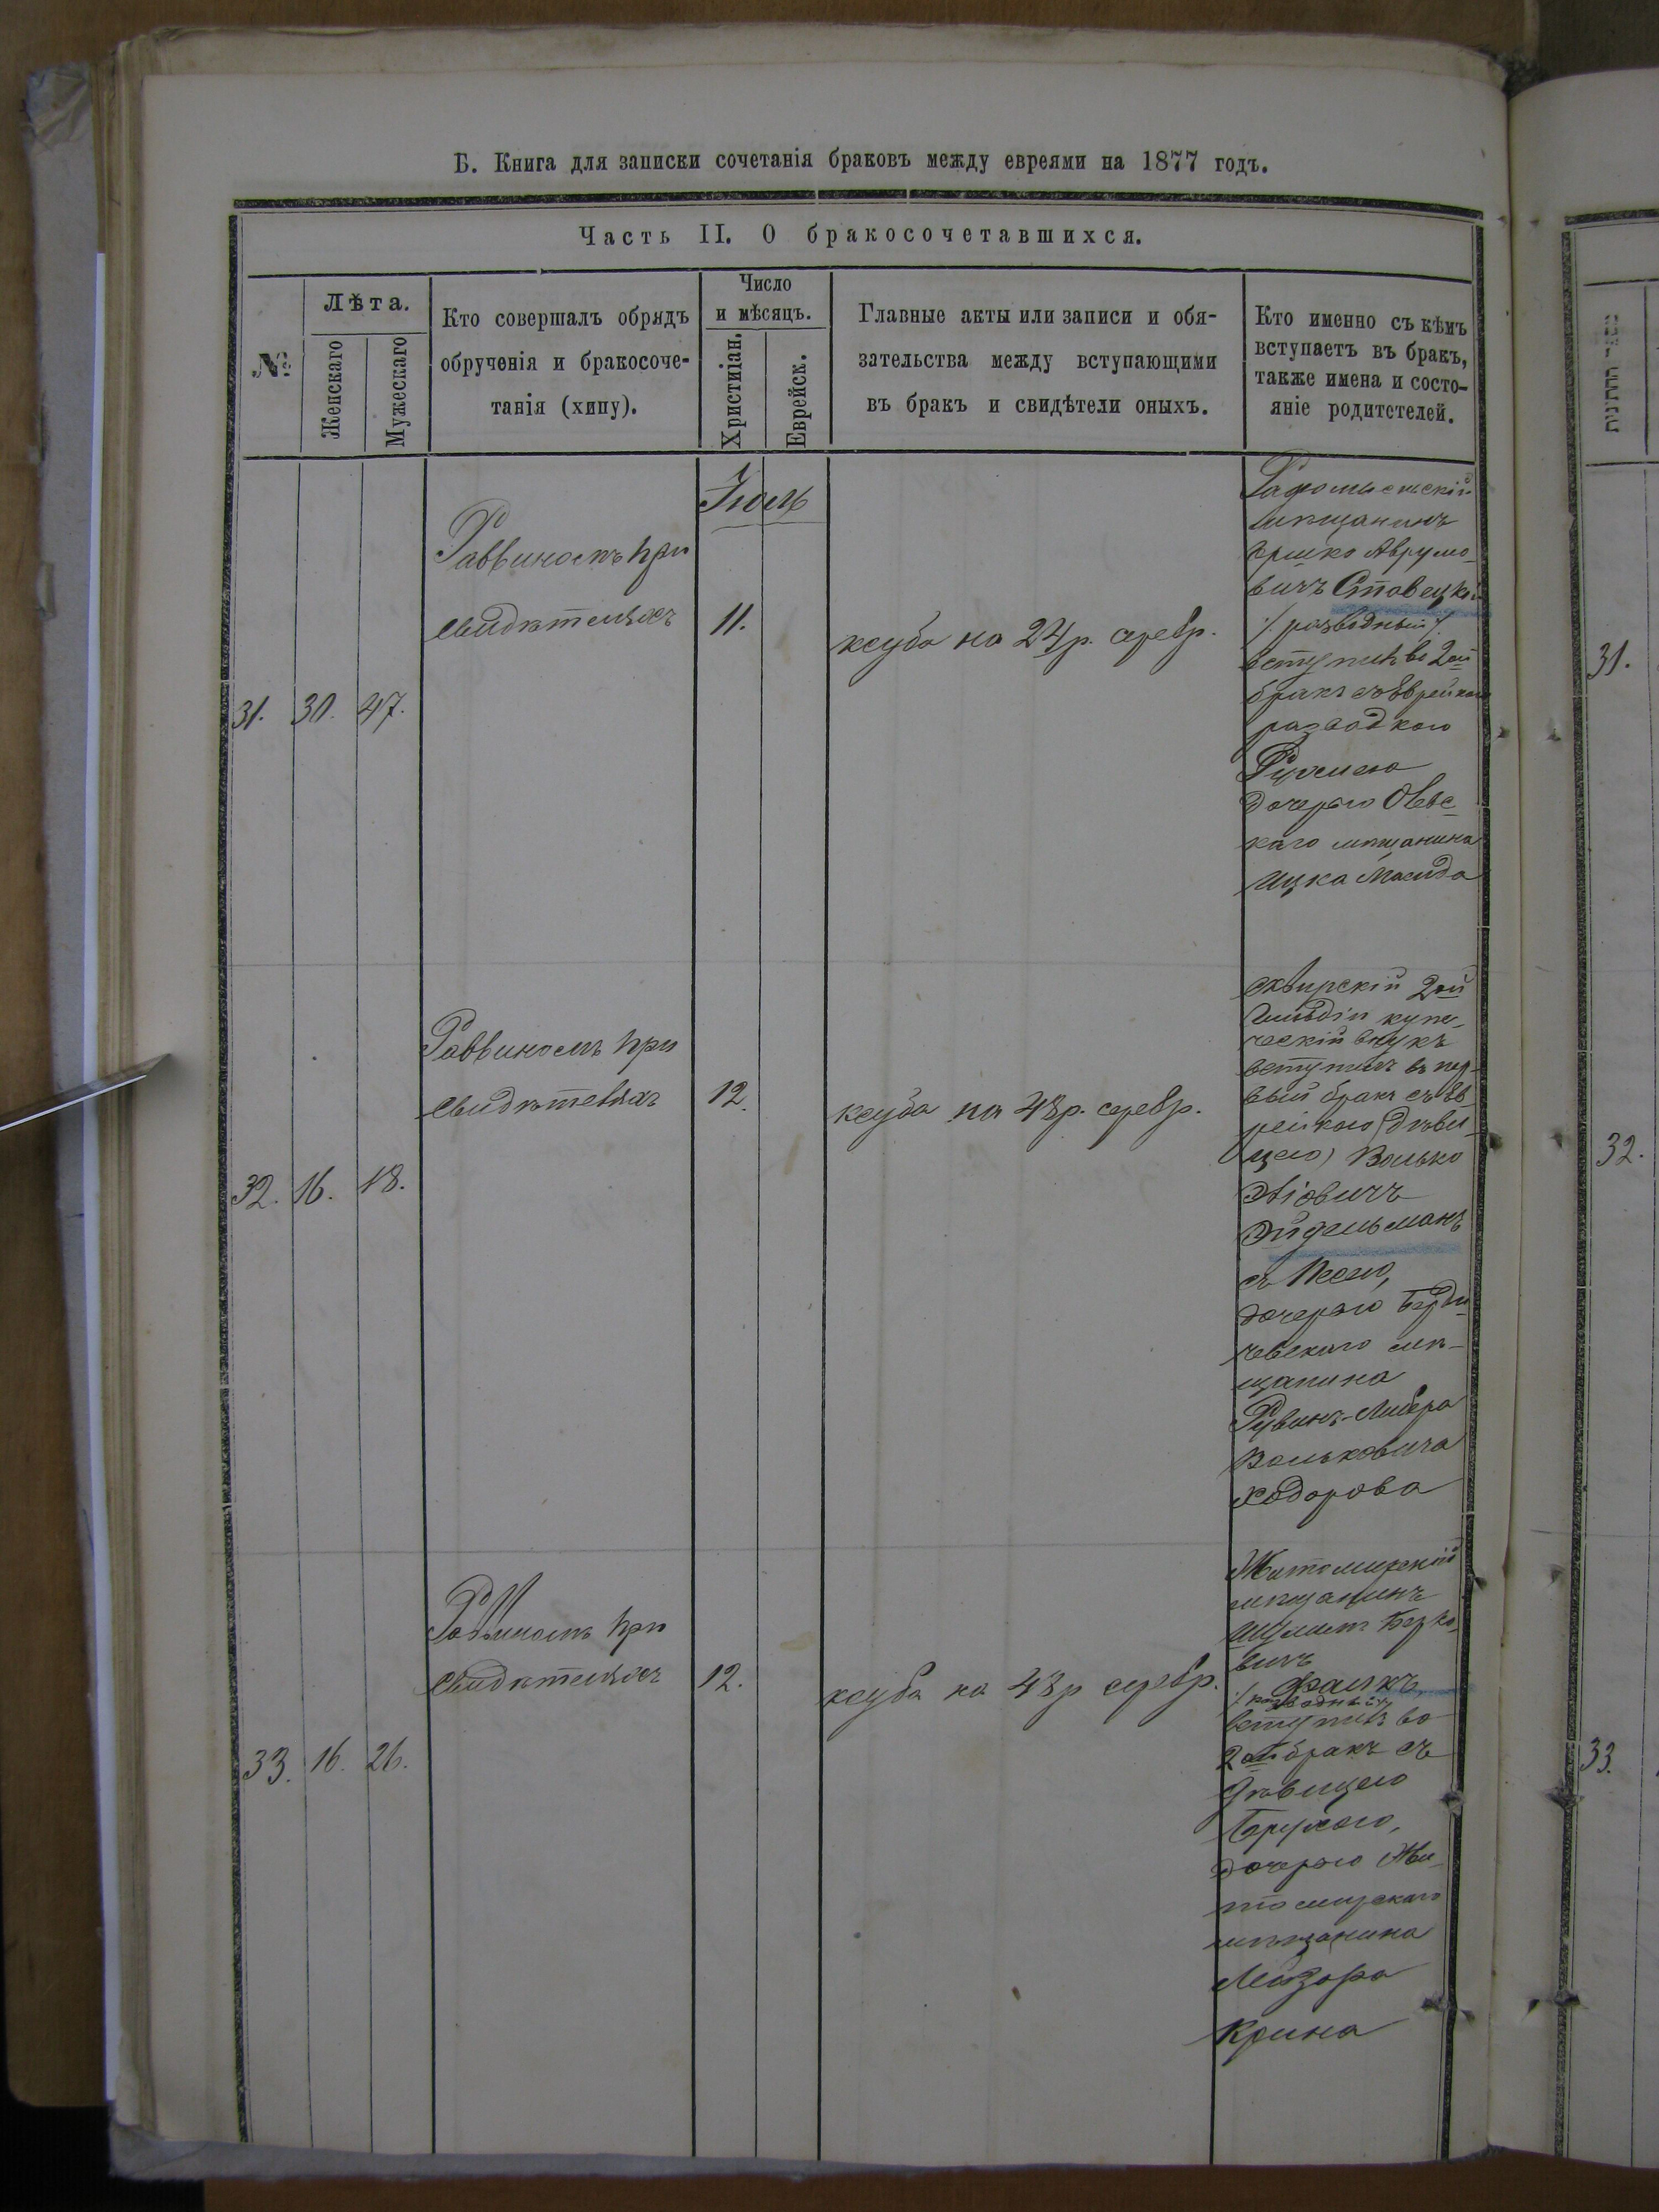 Б. Книга для записки сочетанія браковъ между евреями на 1877 годъ.
Часть II. О бракосочетавшихся.
№
Лѣта.
Женскаго
Мужескаго
Кто совершалъ обрядъ
обрученія и бракосоче-
танія (хипу).
Число
и мѣсяцъ.
Христиіан.
Еврейск.
Главные акты или записи и обя-
зательства между вступающими
въ бракъ и свидѣтели оныхъ.
Кто именно съ кѣмъ
вступаетъ въ бракъ,
также имена и состо-
яніе родитетелей.
Іюль
31. 30. 47.
Раввиномъ при
свидѣтеляхъ
11.
ксуба на 24 р. серебр.
Радомысльскій
мѣщанинъ
Аврумо-
вичъ Ставецкій
/. разводный ./
вступилъ во 2ой
бракъ съ Еврейкою
разводкою
дочерью Овс-
каго мѣщанина
Ицка
32. 16. 18.
Раввиномъ при
свидѣтеляхъ
12.
ксуба на 48 р. серебр.
Сквирскій 2ой
Гильдіи купе-
ческій внукъ
вступилъ въ пер-
вый бракъ съ Ев-
рейкою (дѣви-
цею) Волько
Эйдельманъ
съ Песею,
дочерью Берди-
чевскаго мѣ-
щанина
Рувинъ-Либера
Вольковича
Ходорова
33. 16. 26.
Раввиномъ при
свидѣтеляхъ
12.
ксуба на 48 р серебр.
Житомирскій
мѣщанинъ
Берко-
вичъ
Фалкъ
/. разводный ./
вступилъ во
2ой бракъ съ
дѣвицею
Брухою,
дочерью Жи-
томирскаго
мѣщанина
Лейзора
Крина
31.
32.
33.